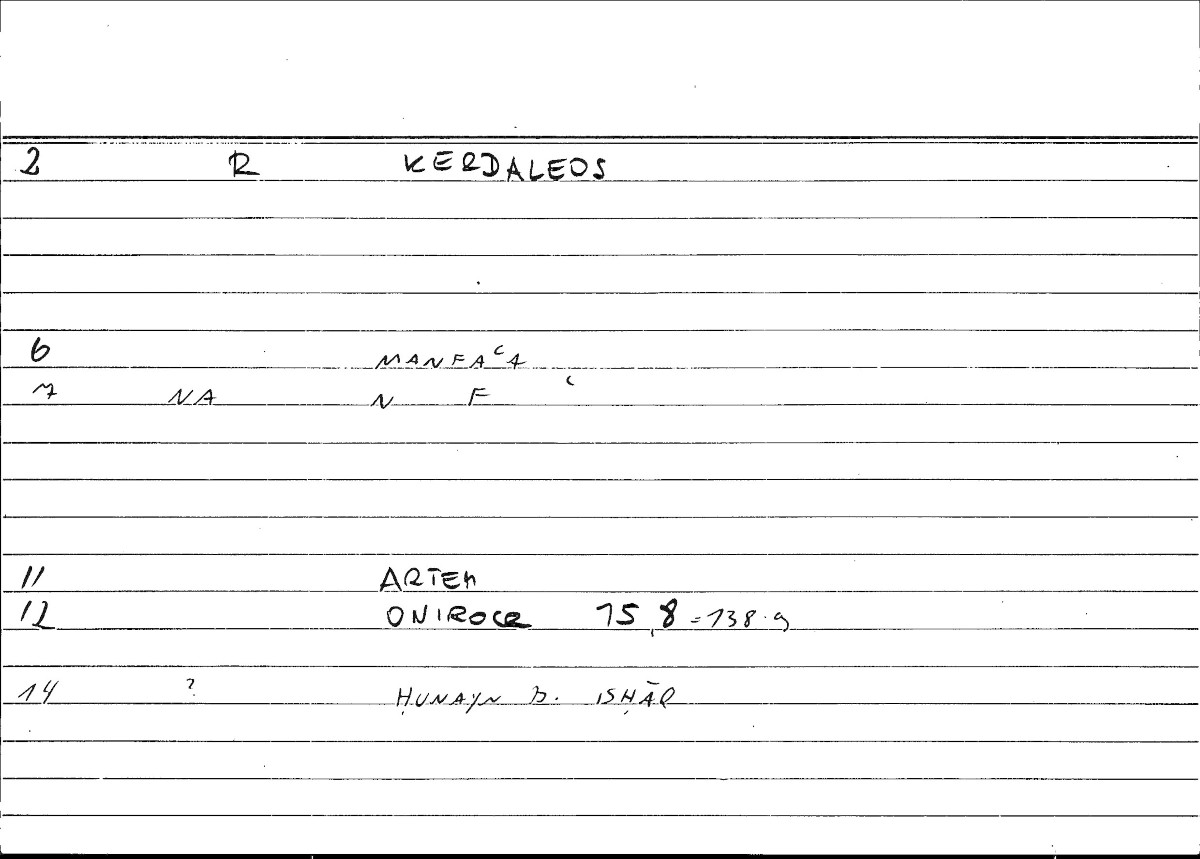 2 R KERDALEOS
6 MANFAʿA
7 NA N F ʿ
11 ARTEM
12 ONIROCR 15,8 = 138.9
14 ? ḤUNAYN B. ISḤĀQ